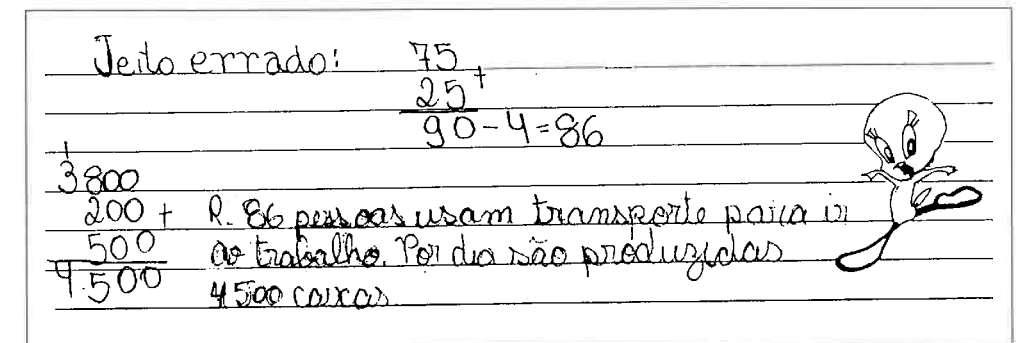 Jeito errado: 75
25 +
90 - 4 = 86
1
3800
200 + R. 86 pessoas usam transporte para ir
500 ao trabalho. Por dia são produzidas
4.500 4500 caixas